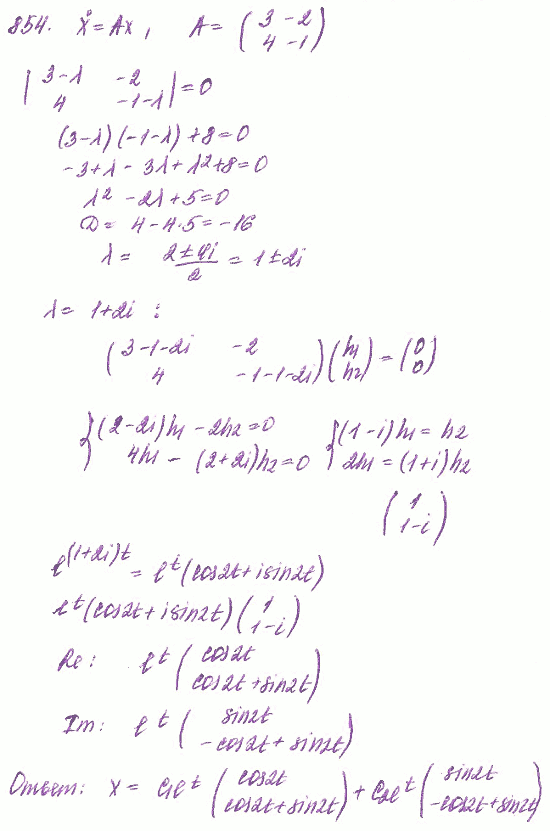 854. ẋ = Ax, A = ( 3 -2 ; 4 -1 )
| 3-λ -2 ; 4 -1-λ | = 0
(3-λ)(-1-λ)+8=0
-3+λ-3λ+λ²+8=0
λ²-2λ+5=0
D = 4-4·5=-16
λ = (2±4i)/2 = 1±2i
λ = 1+2i :
( 3-1-2i -2 ; 4 -1-1-2i ) ( h₁ ; h₂ ) = ( 0 ; 0 )
{ (2-2i)h₁ - 2h₂ = 0 ; 4h₁ - (2+2i)h₂ = 0 { (1-i)h₁ = h₂ ; 2h₁ = (1+i)h₂
( 1 ; 1-i )
e^(1+2i)t = e^t (cos2t + i sin2t)
e^t (cos2t + i sin2t) ( 1 ; 1-i )
Re: e^t ( cos2t ; cos2t + sin2t )
Im: e^t ( sin2t ; -cos2t + sin2t )
Ответ: x = C₁e^t ( cos2t ; cos2t + sin2t ) + C₂e^t ( sin2t ; -cos2t + sin2t )